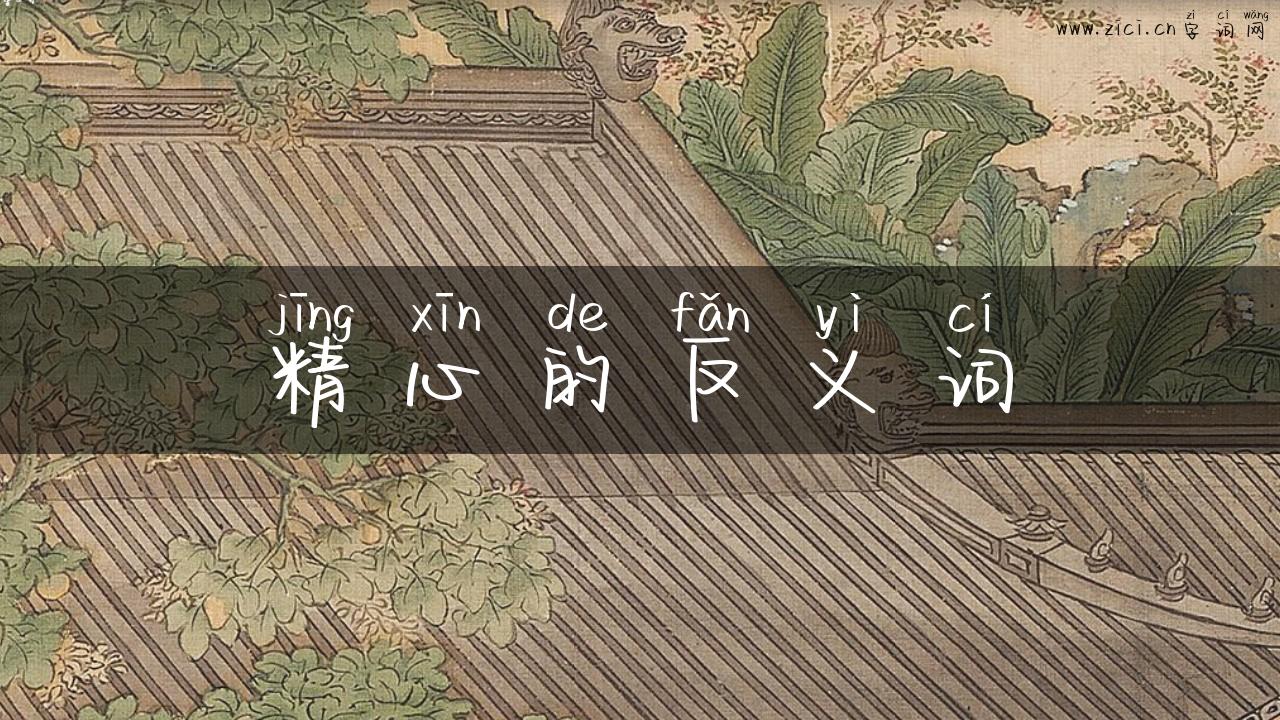 zì cí wǎng
www.zici.cn 字词网
jīng xīn de fǎn yì cí
精心的反义词